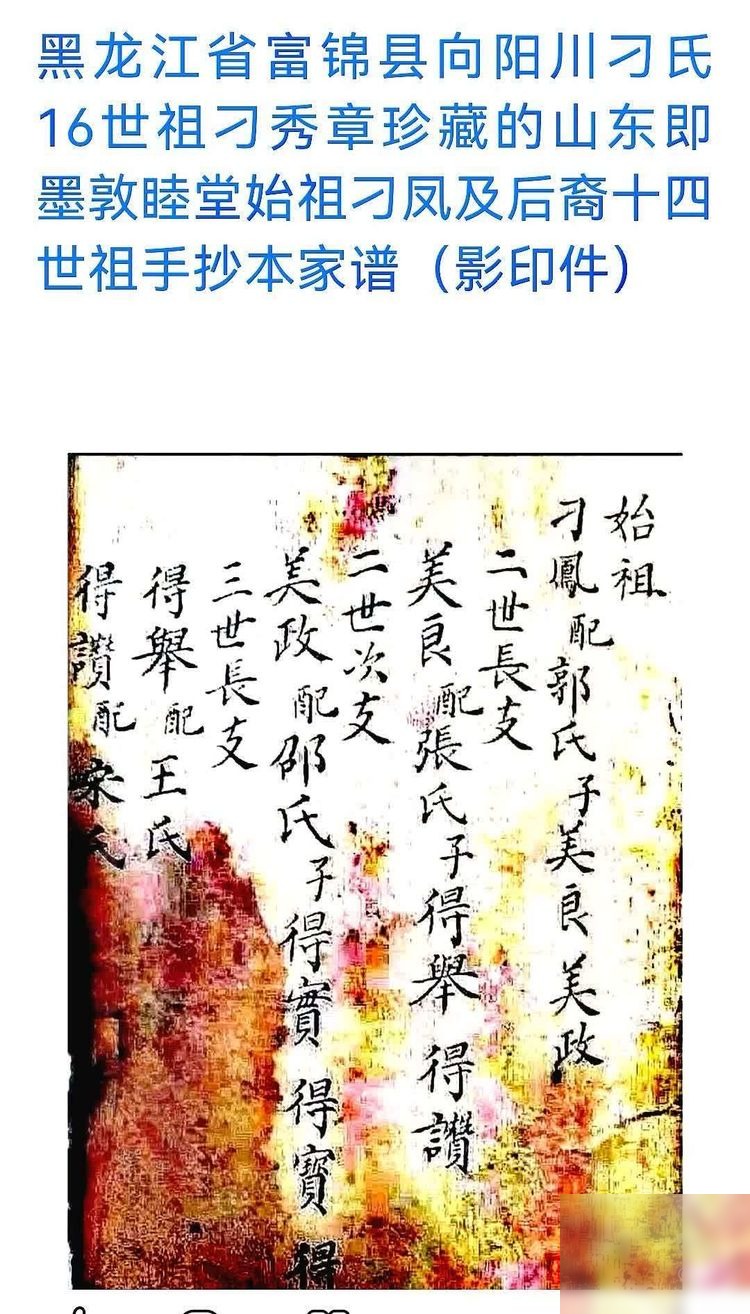 黑龙江省富锦县向阳川刁氏
16世祖刁秀章珍藏的山东即
墨敦睦堂始祖刁凤及后裔十四
世祖手抄本家谱（影印件）
始祖
刁鳳配郭氏子美良美政
二世長支
美良配張氏子得舉得讚
二世次支
美政配邵氏子得實得寶得
三世長支
得舉配王氏
得讚配宋氏